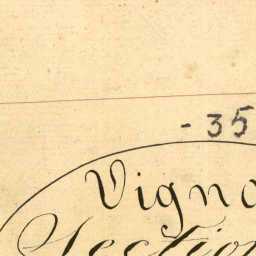 - 35
Vigno
Section